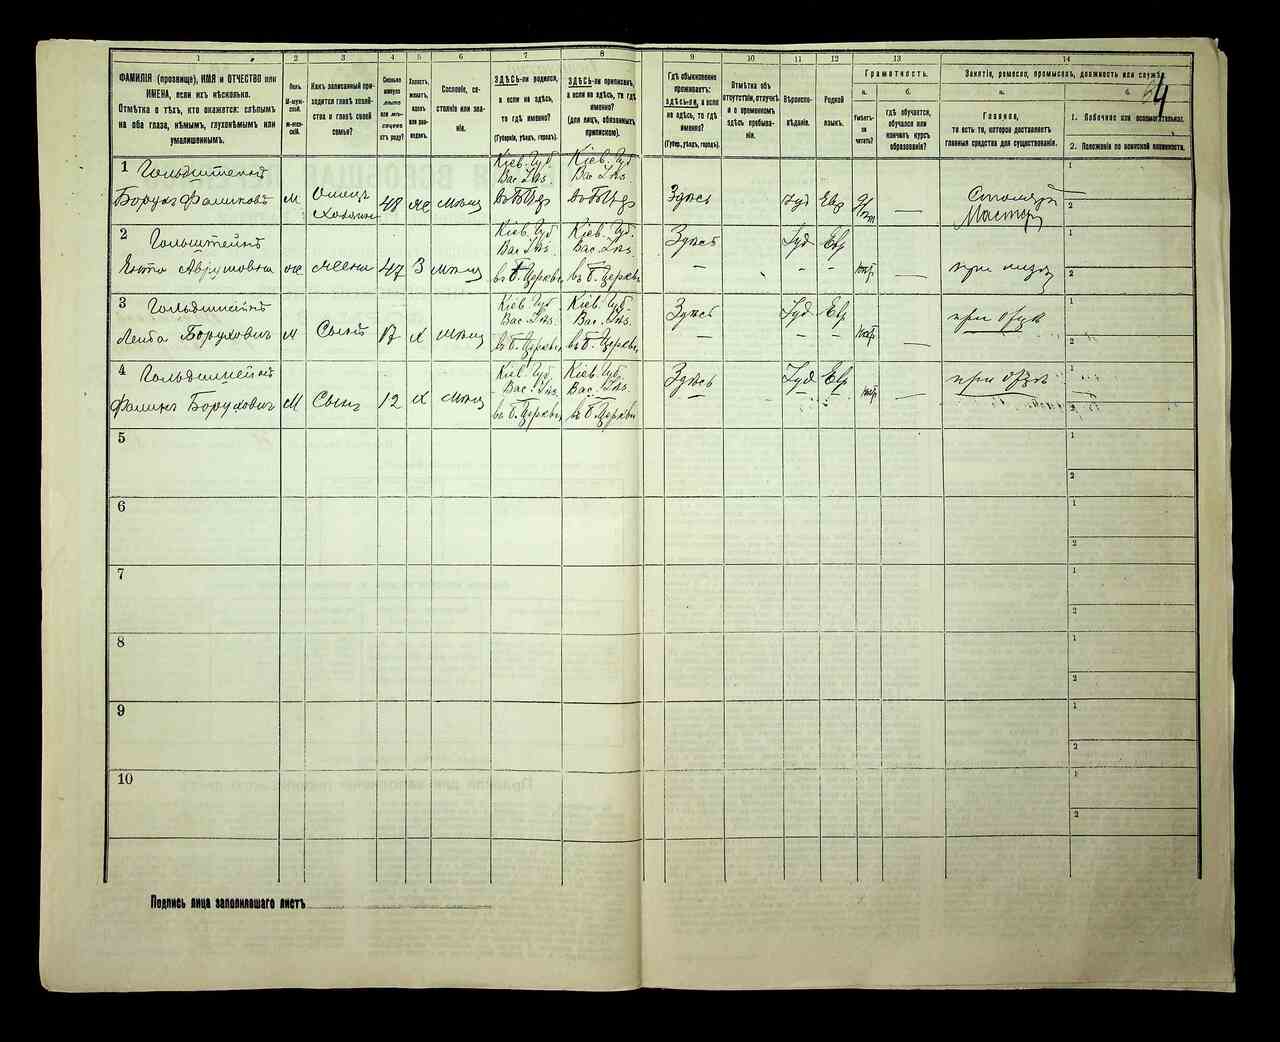 1 2 3 4 5 6 7 8 9 10 11 12 13 14
ФАМИЛІЯ (прозвище), ИМЯ и ОТЧЕСТВО или
ИМЕНА, если ихъ нѣсколько.
Отмѣтка о тѣхъ, кто окажется: слѣпымъ
на оба глаза, нѣмымъ, глухонѣмымъ или
умалишеннымъ.
Полъ.
М-муж-
ской.
Ж-жен-
скій.
Какъ записанный при-
ходится главѣ хозяй-
ства и главѣ своей
семьи?
Сколько
минуло
лѣтъ
или мѣ-
сяцевъ
отъ роду?
Холостъ,
женатъ,
вдовъ
или раз-
веденъ.
Сословіе, со-
стояніе или зва-
ніе.
ЗДѢСЬ-ли родился,
а если не здѣсь,
то гдѣ именно?
(Губернія, уѣздъ, городъ).
ЗДѢСЬ-ли приписанъ,
а если не здѣсь, то гдѣ
именно?
(для лицъ, обязанныхъ
припискою).
Гдѣ обыкновенно
проживаетъ:
здѣсь-ли, а если
не здѣсь, то гдѣ
именно?
(Губер., уѣздъ, городъ).
Отмѣтка объ
отсутствіи, отлучкѣ
и о временномъ
здѣсь пребыва-
ніи.
Вѣроиспо-
вѣданіе.
Родной
языкъ.
Грамотность.
а.
Умѣетъ-
ли
читать?
б.
гдѣ обучается,
обучался или
кончилъ курсъ
образованія?
Занятіе, ремесло, промыселъ, должность или служба.
а.
Главное,
то есть то, которое доставляетъ
главныя средства для существованія.
б.
1. Побочное или вспомогательное.
2. Положеніе по воинской повинности.
4
1 Гольдштейнъ Кіев. Губ Кіев. Губ 1
Вас. Уѣз. Вас. Уѣз.
Борухъ Фаликовъ М хозяинъ 48 же мѣщ Здѣсь Іуд Евр — Столяръ 2
Мастеръ
2 Гольштейнъ Кіев. Губ. Кіев. Губ. Здѣсь Іуд Евр 1
Вас. Уѣз. Вас. Уѣз.
Ента Аврумовна ж жена 47 З мѣщ въ Б. Церкви въ Б. Церкви — — — — при мужѣ 2
3 Гольдштейнъ Кіев. Губ. Кіев. Губ. Здѣсь Іуд Евр при отцѣ 1
Вас. Уѣз. Вас. Уѣз.
Лейба Боруховичъ М Сынъ 17 х мѣщ въ Б. Церкви въ Б. Церкви — — — — 2
4 Гольдштейнъ Кіев. Губ. Кіев. Губ. Здѣсь Іуд Евр при отцѣ 1
Вас. Уѣз. Вас. Уѣз.
Фаликъ Боруховичъ М Сынъ 12 х мѣщ въ Б. Церкви въ Б. Церкви — — — — 2
5 1
2
6 1
2
7 1
2
8 1
2
9 1
2
10 1
2
Подпись лица заполнившаго листъ